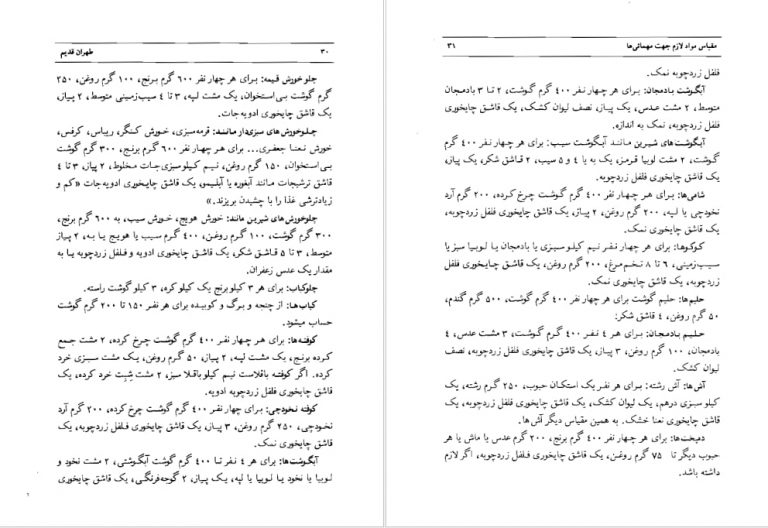 مقیاس مواد لازم جهت مهمانی‌ها ۳۱
فلفل زردچوبه نمک.
آبگوشت بادمجان: برای هر چهار نفر ۴۰۰ گرم گوشت، ۲ تا ۳ بادمجان
متوسط، ۲ مشت عدس، یک پیاز، نصف لیوان کشک، یک قاشق چایخوری
فلفل زردچوبه، نمک به اندازه.
آبگوشت‌های شیرین مانند آبگوشت سیب: برای هر چهار نفر ۴۰۰ گرم
گوشت، ۲ مشت لوبیا قرمز، یک به یا ۴ و ۵ سیب، ۲ قاشق شکر، یک پیاز،
یک قاشق چایخوری فلفل زردچوبه.
شامی‌ها: برای هر چهار نفر ۴۰۰ گرم گوشت چرخ کرده، ۲۰۰ گرم آرد
نخودچی یا لپه، ۲۰۰ گرم روغن، ۲ پیاز، یک قاشق چایخوری فلفل زردچوبه،
یک قاشق چایخوری نمک.
کوکوها: برای هر چهار نفر نیم کیلو سبزی یا بادمجان یا لوبیا سبز یا
سیب‌زمینی، ۶ تا ۸ تخم‌مرغ، ۲۰۰ گرم روغن، یک قاشق چایخوری فلفل
زردچوبه، یک قاشق چایخوری نمک.
حلیم‌ها: حلیم گوشت برای هر چهار نفر ۴۰۰ گرم گوشت، ۵۰۰ گرم گندم،
۵۰ گرم روغن، ۴ قاشق شکر:
حلیم بادمجان: برای هر ۴ نفر ۴۰۰ گرم گوشت، ۳ مشت عدس، ۴
بادمجان، ۱۰۰ گرم روغن، ۳ پیاز، یک قاشق چایخوری فلفل زردچوبه، نصف
لیوان کشک.
آش‌ها: آش رشته: برای هر نفر یک استکان حبوب، ۲۵۰ گرم رشته، یک
کیلو سبزی درهم، یک لیوان کشک، یک قاشق چایخوری فلفل زردچوبه، یک
قاشق چایخوری نعنا خشک. به همین مقیاس دیگر آش‌ها.
دمپخت‌ها: برای هر چهار نفر ۴۰۰ گرم برنج، ۲۰۰ گرم عدس یا ماش یا هر
حبوب دیگر تا ۷۵ گرم روغن، یک قاشق چایخوری فلفل زردچوبه، اگر لازم
داشته باشد.
۳۰ طهران قدیم
چلوخورش قیمه: برای هر چهار نفر ۶۰۰ گرم برنج، ۱۰۰ گرم روغن، ۲۵۰
گرم گوشت بی‌استخوان، یک مشت لپه، ۳ تا ۴ سیب‌زمینی متوسط، ۲ پیاز،
یک قاشق چایخوری ادویه‌جات.
چلوخورش‌های سبزی‌دار مانند: قرمه‌سبزی، خورش کنگر، ریباس، کرفس،
خورش نعنا جعفری... برای هر چهار نفر ۶۰۰ گرم برنج، ۳۰۰ گرم گوشت
بی‌استخوان، ۱۵۰ گرم روغن، نیم کیلو سبزی‌جات مخلوط، ۲ پیاز، ۳ تا ۴
قاشق ترشیجات مانند آبغوره یا آبلیمو، یک قاشق چایخوری ادویه‌جات «کم و
زیادترشی غذا را با چشیدن بریزند.»
چلوخورش‌های شیرین مانند: خورش هویج، خورش سیب، به ۶۰۰ گرم برنج،
۳۰۰ گرم گوشت، ۱۰۰ گرم روغن، ۴۰۰ گرم سیب یا هویج یا به، ۲ پیاز
متوسط، ۳ تا ۵ قاشق شکر، یک قاشق چایخوری ادویه و فلفل زردچوبه یا به
مقدار یک عدس زعفران.
چلوکباب: برای هر ۳ کیلو برنج یک کیلو کره، ۳ کیلو گوشت راسته.
کباب‌ها: از چنجه و برگ و کوبیده برای هر نفر ۱۵۰ تا ۲۰۰ گرم گوشت
حساب میشود.
کوفته‌ها: برای هر چهار نفر ۴۰۰ گرم گوشت چرخ کرده، ۲ مشت جمع
کرده برنج، یک مشت لپه، ۲ پیاز، ۵۰ گرم روغن، یک مشت سبزی خرد
کرده. اگر کوفته باقلاست نیم کیلو باقلا سبز، ۲ مشت شِبِت خرد کرده، یک
قاشق چایخوری فلفل زردچوبه ادویه.
کوفته نخودچی: برای چهار نفر ۴۰۰ گرم گوشت چرخ کرده، ۲۰۰ گرم آرد
نخودچی، ۲۵۰ گرم روغن، ۳ پیاز، یک قاشق چایخوری فلفل زردچوبه، یک
قاشق چایخوری نمک.
آبگوشت‌ها: برای هر ۴ نفر تا ۴۰۰ گرم گوشت آبگوشتی، ۲ مشت نخود و
لوبیا یا نخود یا لوبیا یا لپه، یک پیاز، ۲ گوجه‌فرنگی، یک قاشق چایخوری